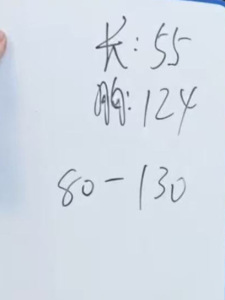 长:55
胸:124
80-130